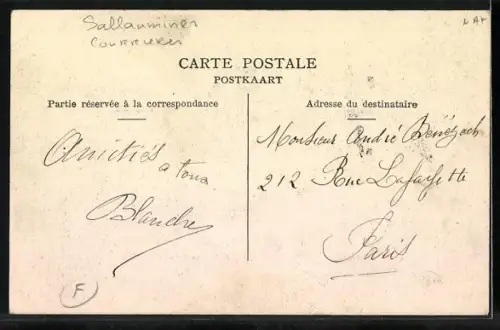 Sallaumines
Courrières
CARTE POSTALE
POSTKAART
Partie réservée à la correspondance
Adresse du destinataire
Amitiés
a tous
Blanche
Monsieur André
212 Rue Lafayette
Paris
F